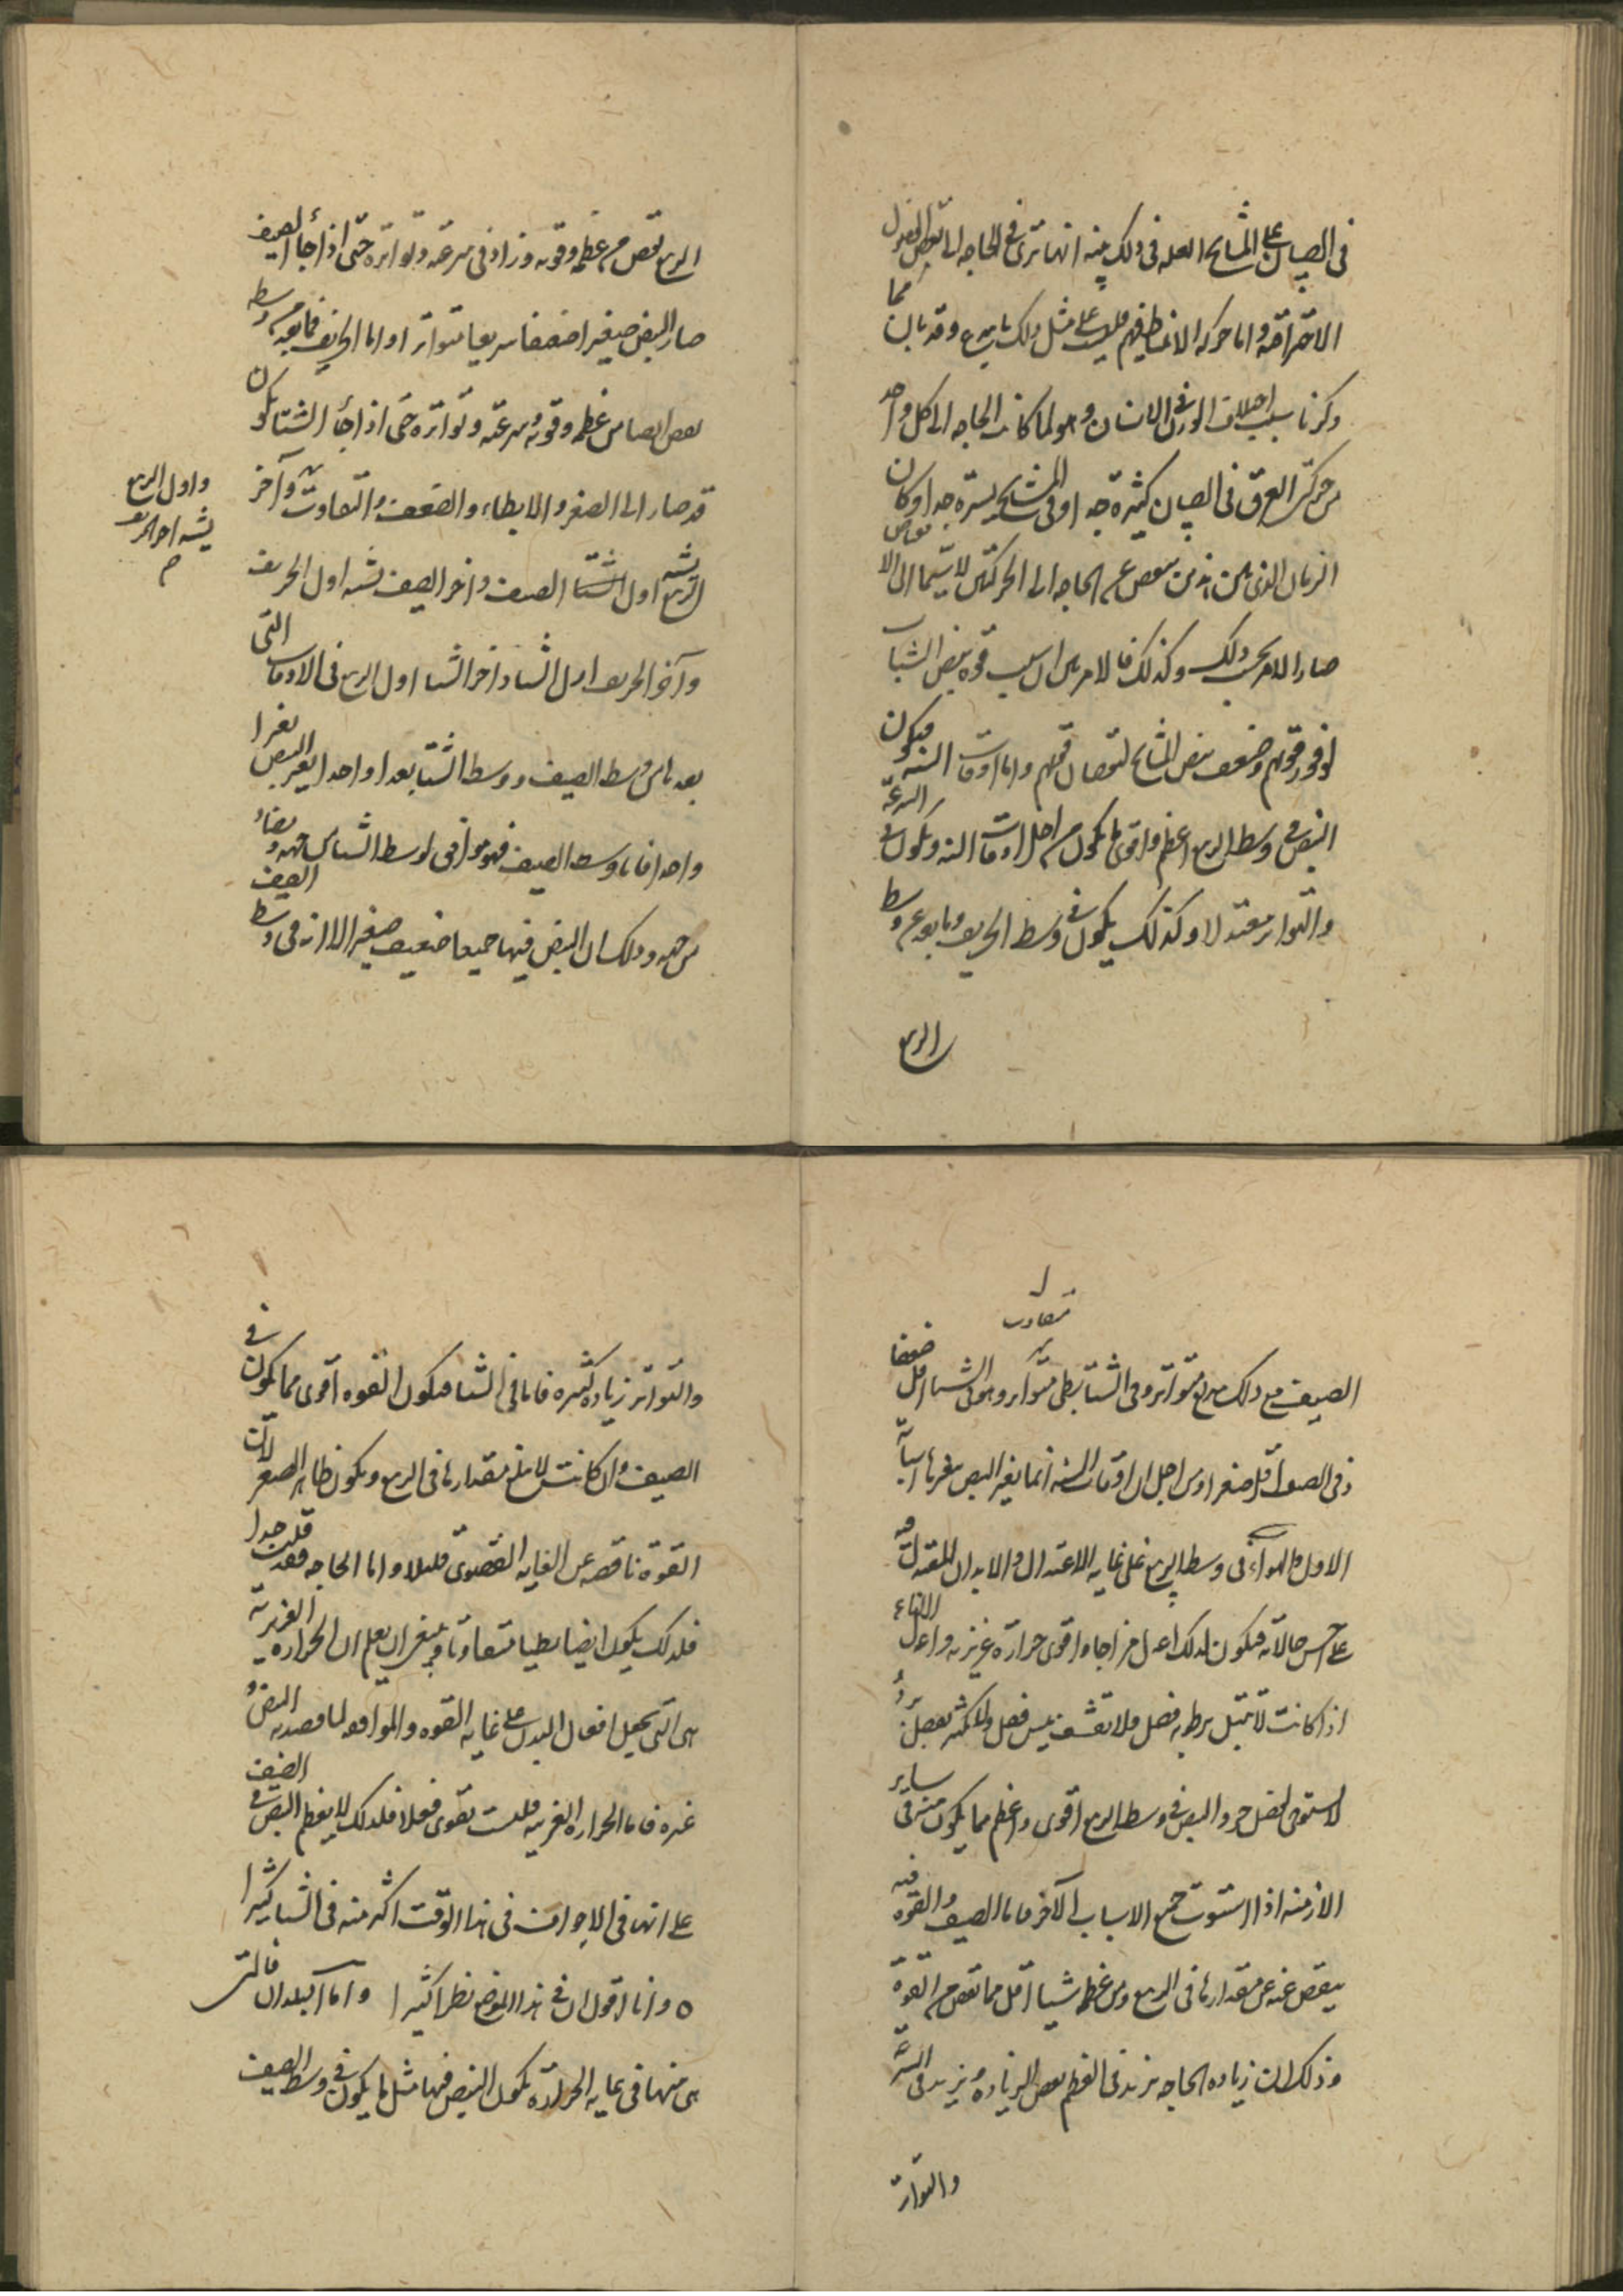 في الصبيان على المشايخ العله في ذلك بينه انها ترتفع الحاجه الى نفض الفضول
الاحتراقية واما حركه الانقباض فيهم فليست على مثل ذلك وقد بان مما
ذكرنا سبب اختلاف الوزن في الانسان وهو لما كانت الحاجه الى كل واحد
من حركتي العرق في الصبيان كثيرة جدا وفي المشايخ يسيرة جدا وكان
الحاجه الى الحركتين لا سيما الى الانقباض
صار الامر بحسب ذلك وكذلك فالامر بين ان سبب قوه نبض الشباب
لوفور قوتهم وضعف نبض المشايخ لنقصان قوتهم واما اوقات السنه فيكون
النبض في وسط الربيع اعظم واقوى ما يكون من اجل اوقات السنه ويكون في السرعة
والتواتر معتدلا وكذلك يكون في وسط الخريف وما بعد عن وسط
الربيع
الربيع نقص من عظمه وقوته وزاد في سرعته وتواتره حتى اذا جاء الصيف
صار النبض صغيرا ضعيفا سريعا متواترا واما الخريف فما بعد من وسطه
نقص ايضا من عظمه وقوته وسرعته وتواتره حتى اذا جاء الشتا يكون
قد صار الى الصغر والابطاء والضعف والتفاوت وآخر
الربيع يشبه اول الشتا الصيف واخر الصيف يشبه اول الخريف
واول الربيع
يشبه اخر الخريف
وآخر الخريف اول الشتا واخر الشتا اول الربيع في الاوقات التي
بعدها من وسط الصيف ووسط الشتا بعدا واحدا يتغير النبض تغيرا
واحدا فاما وسط الصيف فهو موافق لوسط الشتا من جهه ويضاد
من جهه وذلك ان النبض فيهما جميعا ضعيف صغير الا انه في وسط الصيف
متفاوت
الصيف مع ذلك سريع متواتر وفي الشتا بطي متواتر وهو في الشتا اقل ضعفا
وفي الصيف اقل صغرا ومن اجل ان اوقات السنه انما يغير النبض بتغيرها اسبابه
الاول والهواء في وسط الربيع على غايه الاعتدال والابدان المتقلبه فيه
على احسن حالاته فيكون لذلك اعدل مزاجا واقوى حرارة غريزيه واعدل
اذا كانت لا تبتل برطوبه فضل ولا تقشف بيبس فضل ولا تكمد بفضل برد
لا تستوقد بفضل حر والنبض في وسط الربيع اقوى واعظم مما يكون منه في ساير
الازمنه اذا استوت جميع الاسباب الآخر فاما الصيف والقوه فيه
ينقص عنه عن مقدارها في الربيع ومن عظمه شيا اقل مما نقص من القوة
وذلك ان زياده الحاجه تزيد في العظم بعض الزيادة وتزيد في السرعة
والتواتر
والتواتر زياده كثيره فاما في الشتا فيكون القوه اقوى مما يكون في
الصيف وان كانت لا تبلغ مقدارها في الربيع ويكون ظاهر الصغر لان
القوة ناقصه عن الغايه القصوى قليلا واما الحاجه فقد قلت جدا
فلذلك يكون ايضا بطيا متفاوتا وينبغي ان يعلم ان الحراره الغريزية
هي التي تجعل افعال البدن على غايه القوه والموافقه لما قصد به
غيره فاما الحراره الغريبه فليست تقوى فعلا فلذلك لا يعظم النبض في الصيف
على انها في الاجواف في هذا الوقت اكثر منه في الشتا كثيرا
ه وانا اقول ان في هذا الموضع نظرا كثيرا واما البلدان فالتي
هي منها في غايه الحرارة يكون النبض فيها مثل ما يكون في وسط الصيف